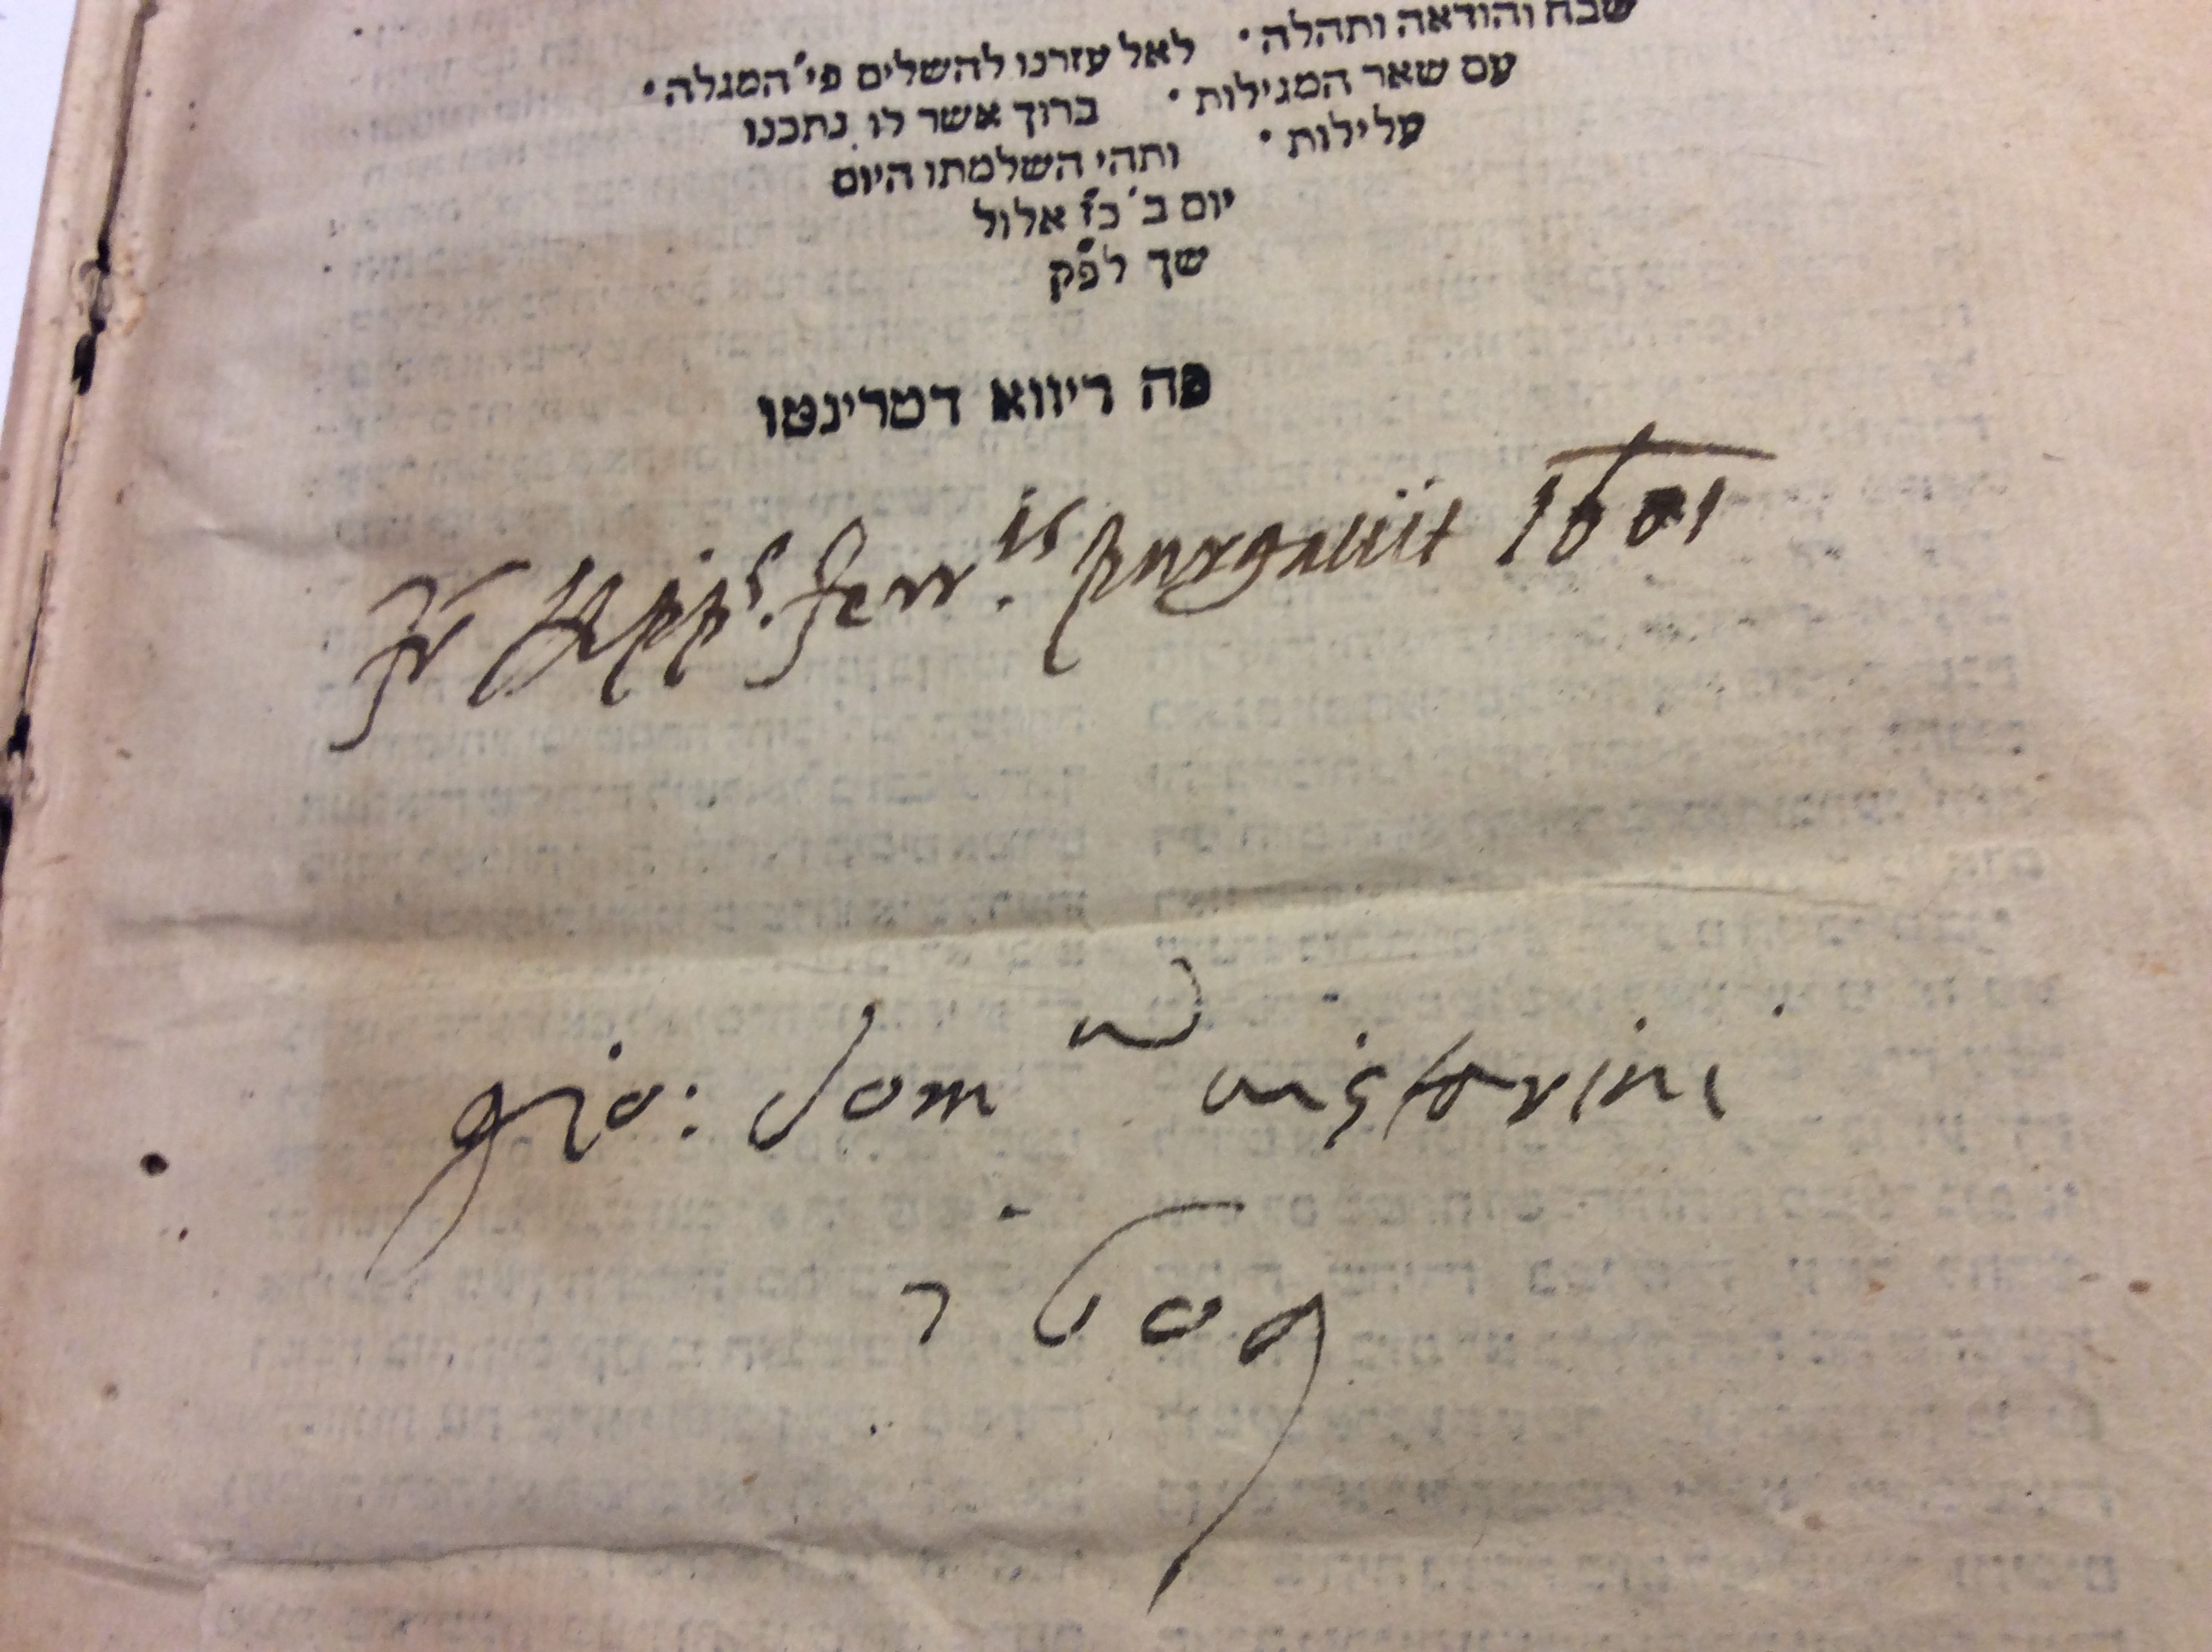 שבח והודאה ותהלה · לאל עזרנו להשלים פי' המגלה ·
עם שאר המגילות · ברוך אשר לו נתכנו
עלילות · ותהי השלמתו היום
יום ב' כז אלול
שך לפק
פה ריווא דטרינטו
Fr Hipp.s ferr.is purgauit 1601
gio: dom Vistorini
1609